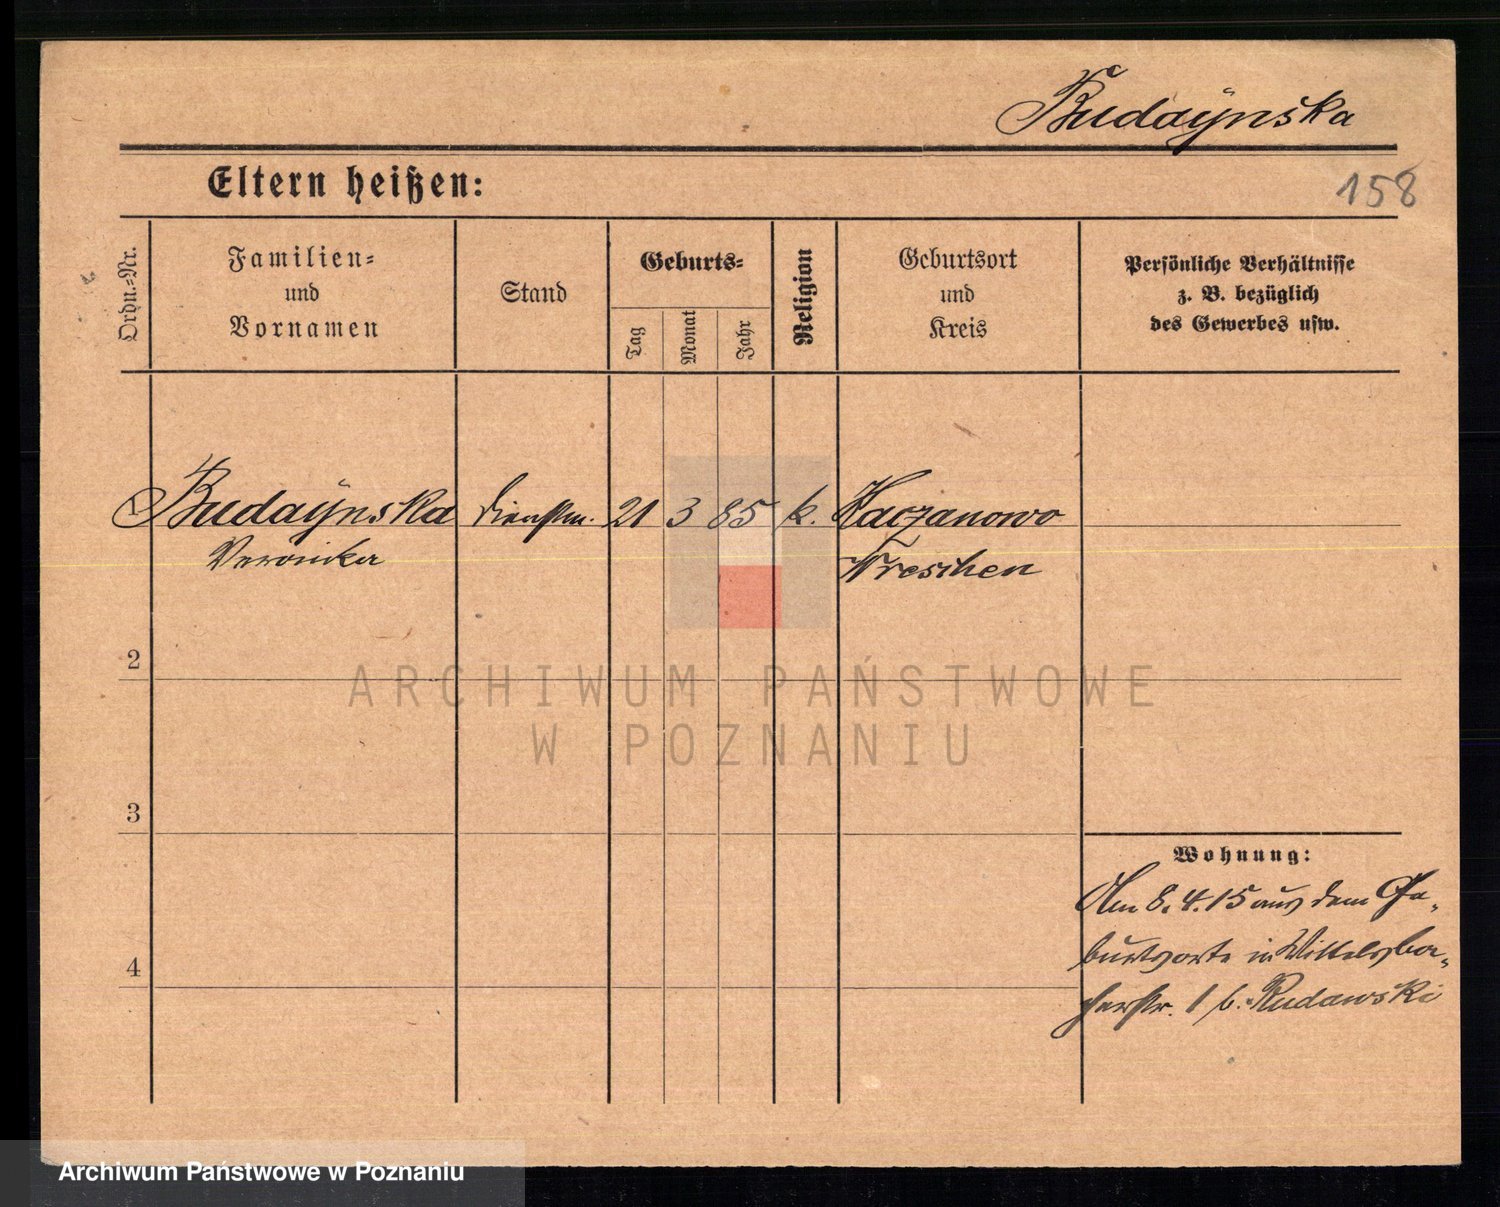 Rudaÿnska
158
Eltern heißen:
Ordn.-Nr.
Familien-
und
Vornamen
Stand
Geburts-
Tag
Monat
Jahr
Religion
Geburtsort
und
Kreis
Persönliche Verhältnisse
z. B. bezüglich
des Gewerbes usw.
1 Rudaÿnska Dienstm. 21 3 85 k. Kaczanowo
Veronika Wreschen
2
ARCHIWUM PAŃSTWOWE
W POZNANIU
3
Wohnung:
Am 8.4.15 aus dem Ge-
4
burtsorte in Wittelsba-
cherstr. 1 b. Rudawski
Archiwum Państwowe w Poznaniu